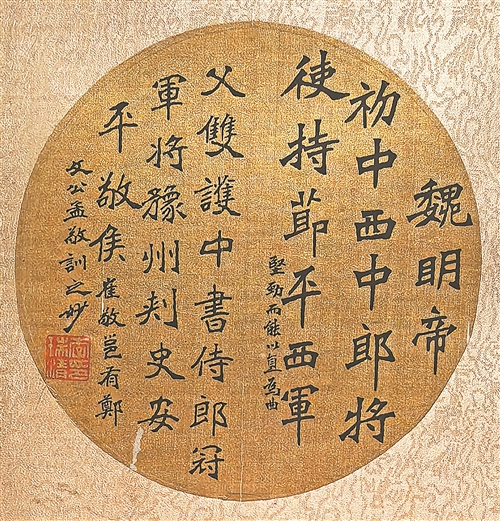 魏明帝
初中西中郎將
使持莭平西軍
堅勁而能以直為曲
父雙護中書侍郎冠
軍將豫州刾史安
平敬侯
崔敬邕有鄭
文公孟敬訓之妙